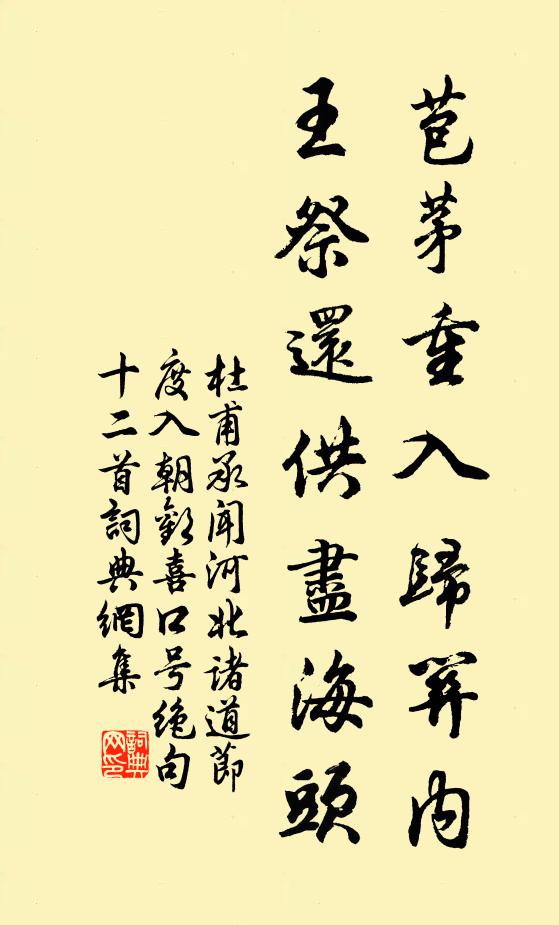 苞茅重入歸關内
王祭還供盡海頭
杜甫承聞河北諸道節
度入朝歡喜口号絶句
十二首詞典網集
詞典网印